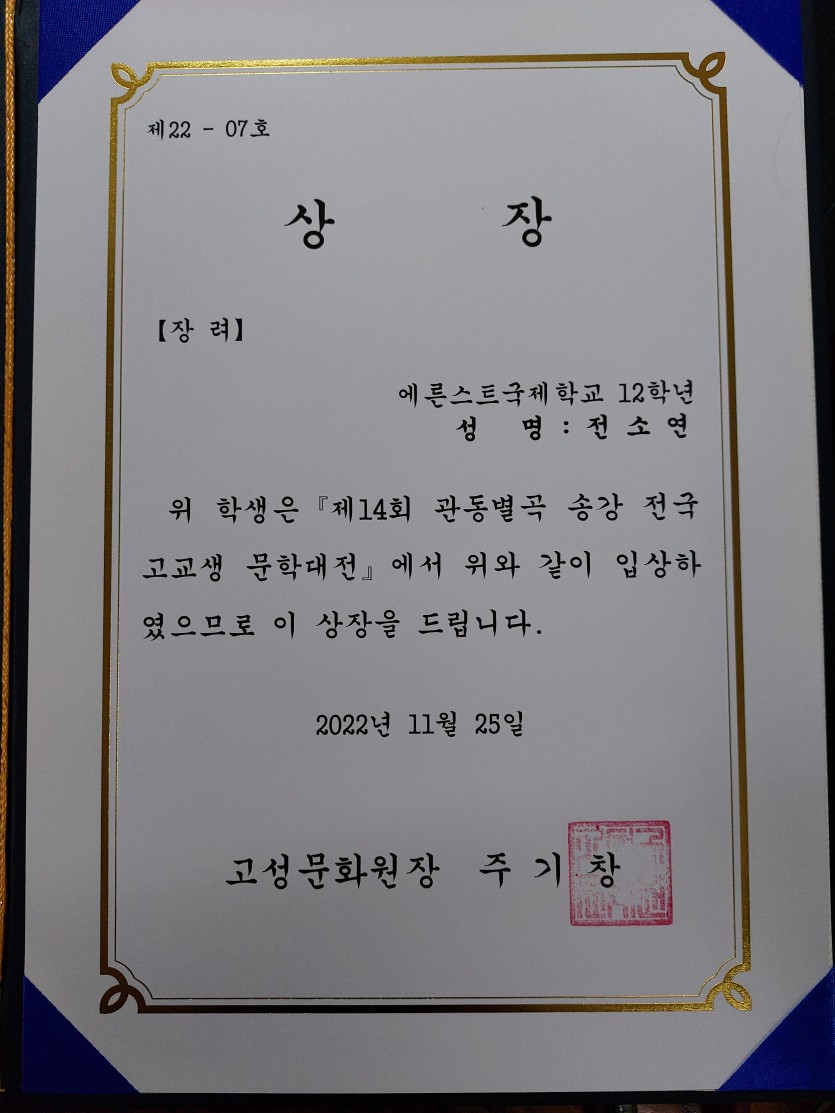 제22 - 07호
상 장
【장 려】
에른스트국제학교 12학년
성 명 : 전 소 연
위 학생은 『제14회 관동별곡 송강 전국
고교생 문학대전』에서 위와 같이 입상하
였으므로 이 상장을 드립니다.
2022년 11월 25일
고성문화원장 주 기 창